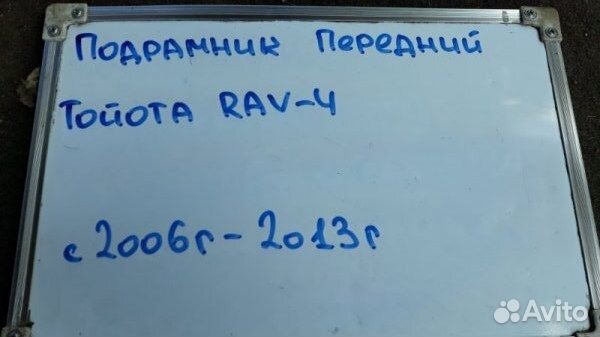 Подрамник Передний
Тойота RAV-4
с 2006г - 2013г
Avito